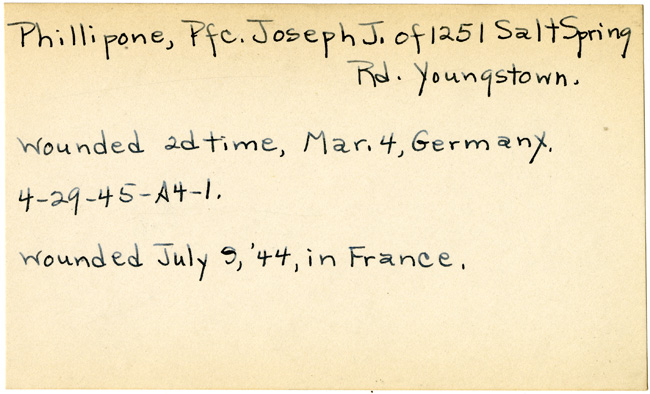 Phillipone, Pfc. Joseph J. of 1251 Salt Spring
Rd. Youngstown.
Wounded 2d time, Mar. 4, Germany.
4-29-45-A4-1.
Wounded July 9, '44, in France.